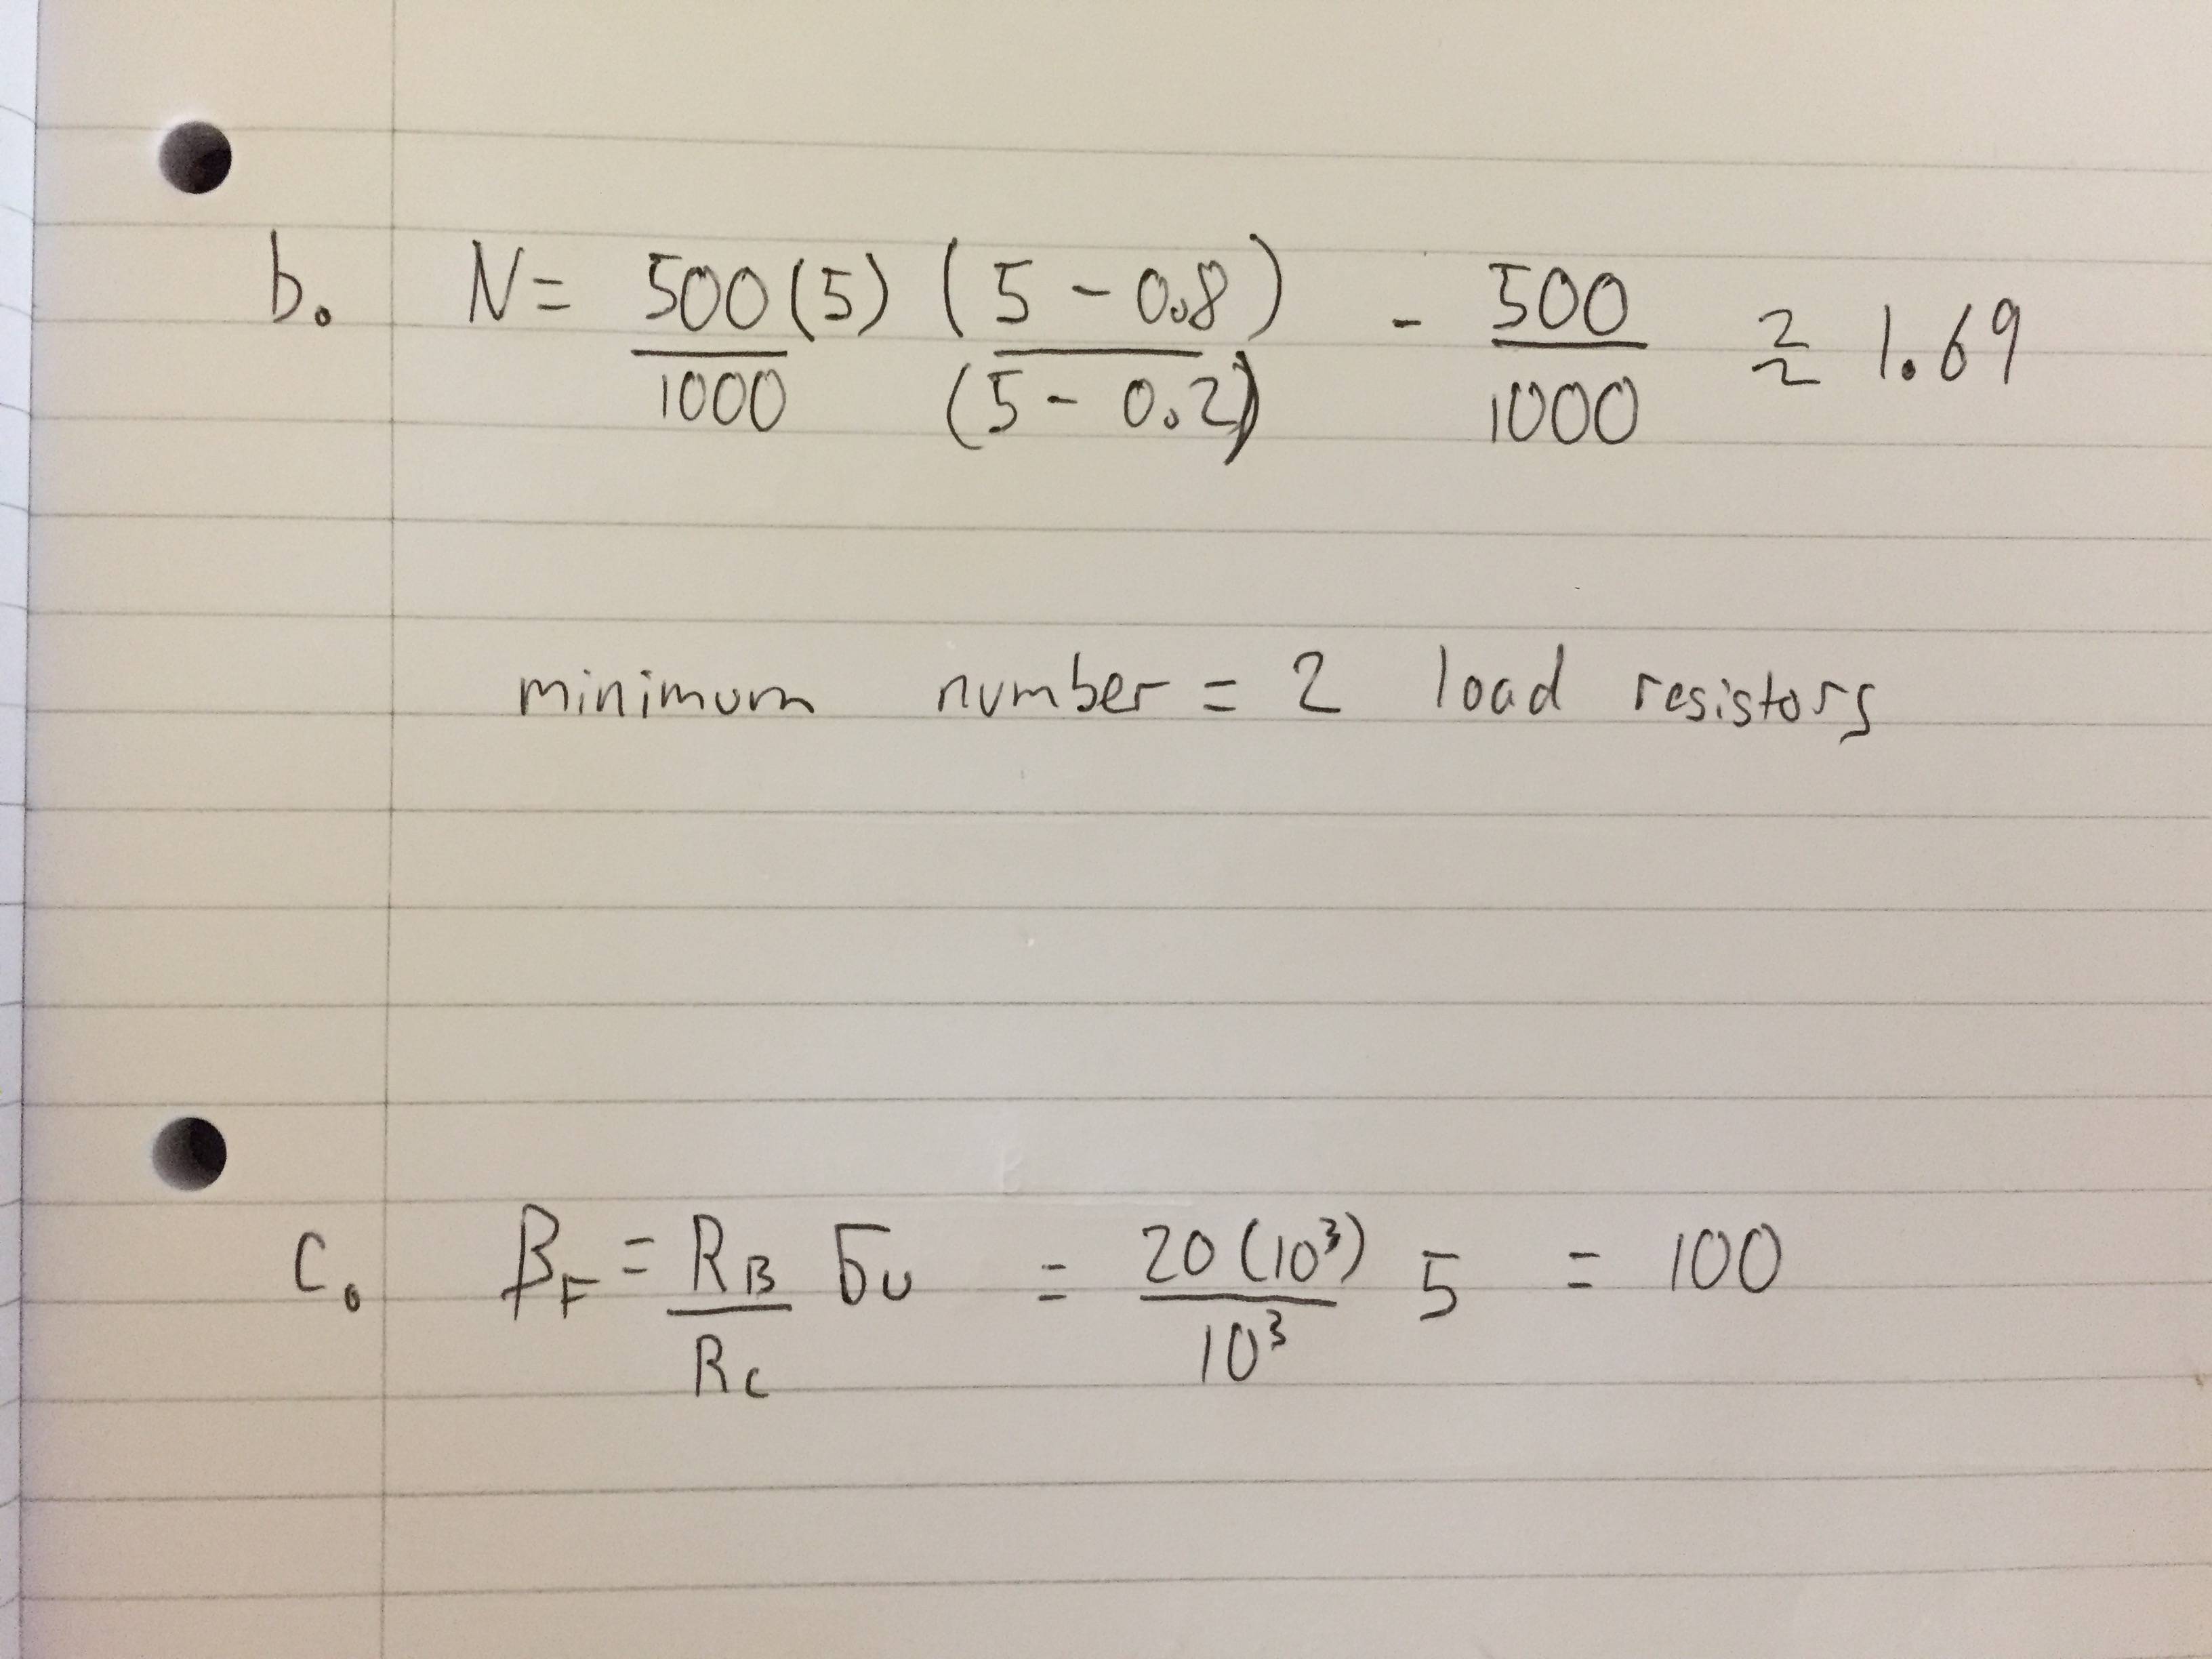 b. N = 500(5)/1000 (5 - 0.8)/(5 - 0.2) - 500/1000 ≅ 1.69
minimum number = 2 load resistors
c. βF = RB/RC = 20(10³)/10³ 5 = 100